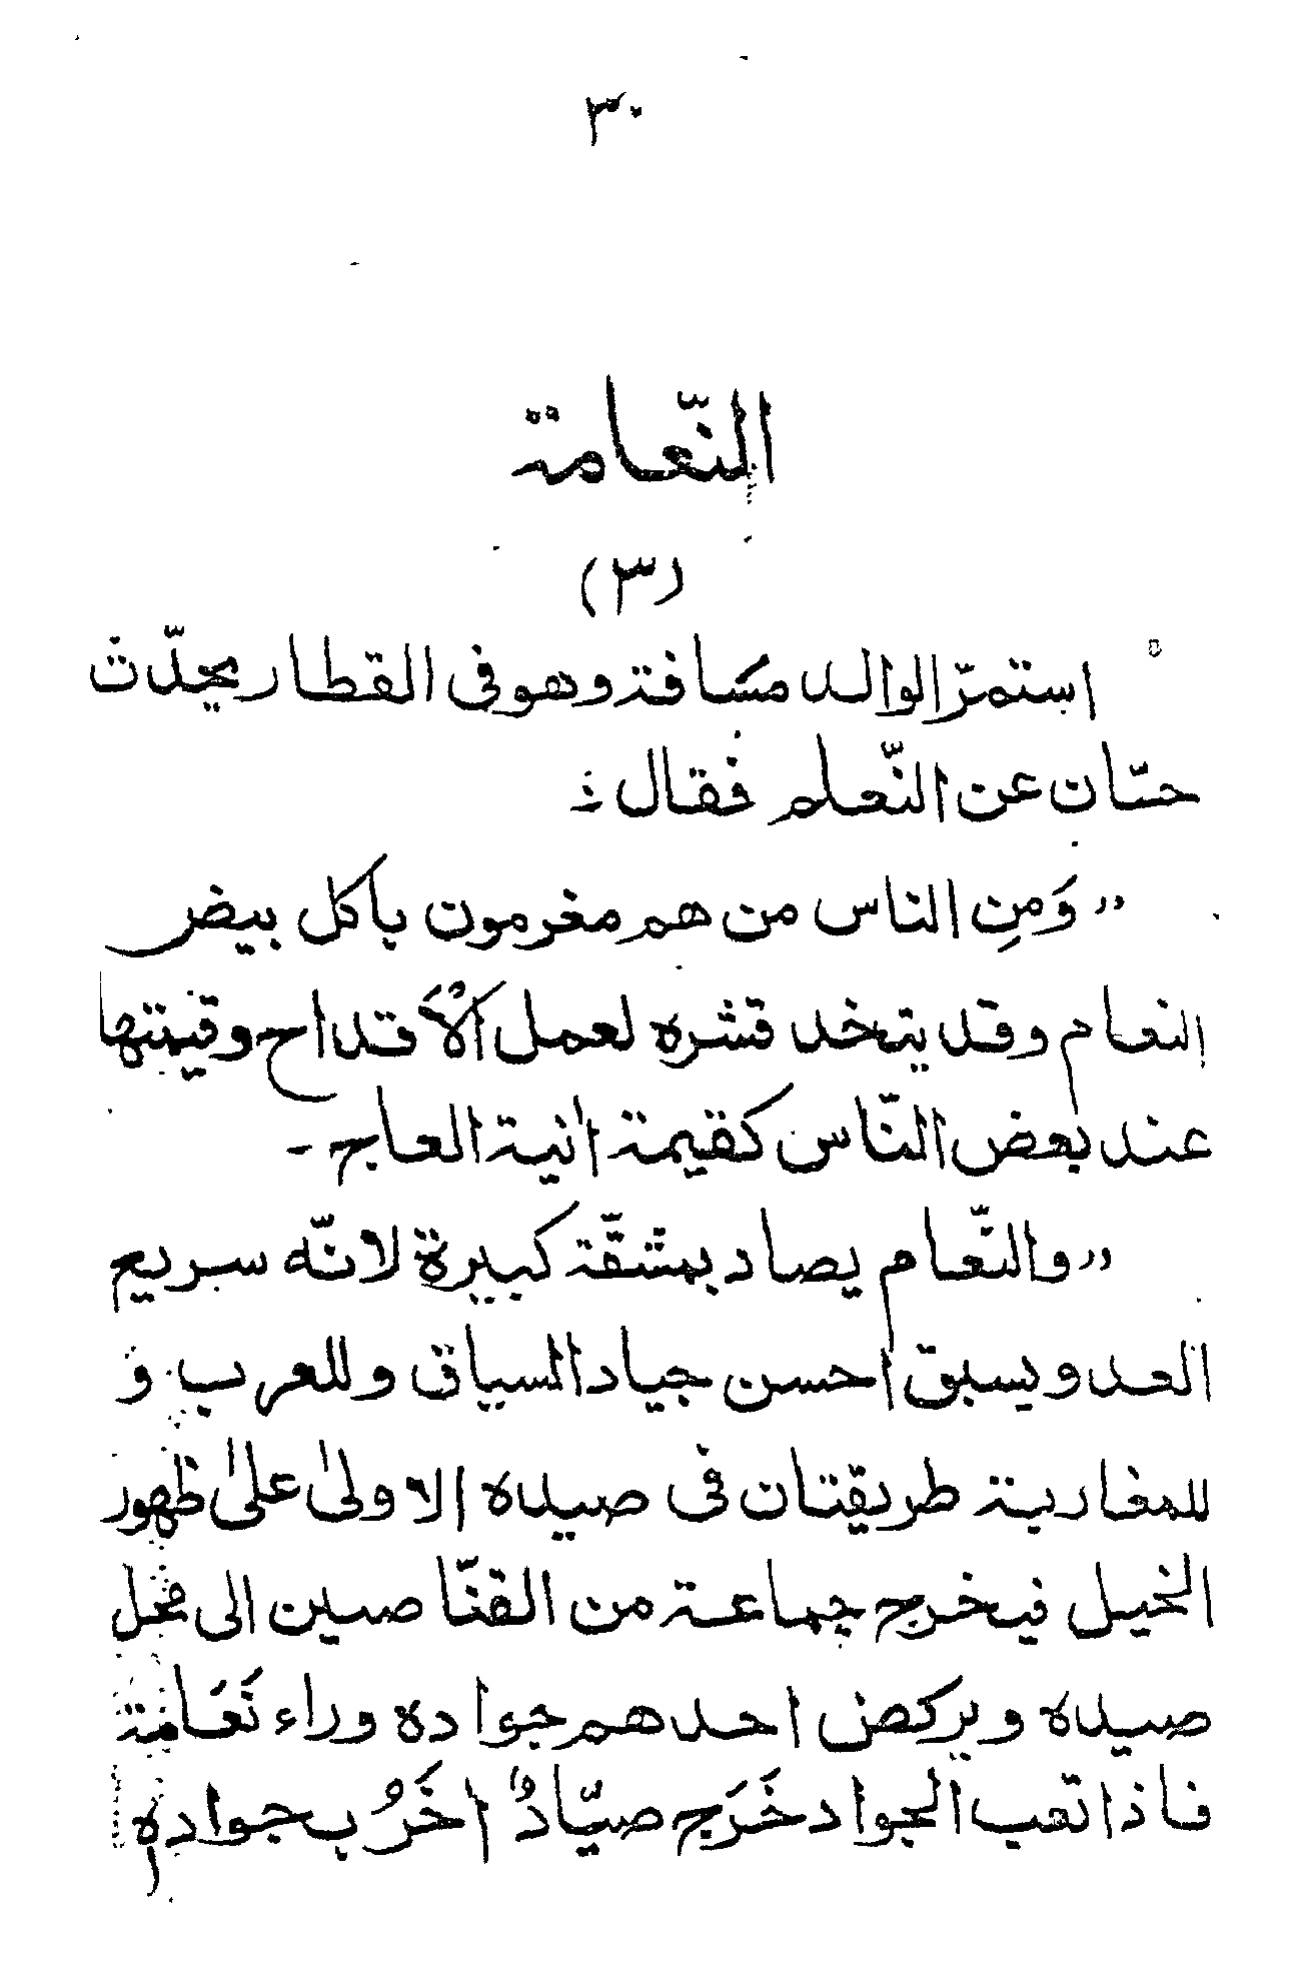 ٣٠
النّعامة
(٣)
استمرّ الوالد مسافة وهو فى القطار يحدّث
حسّان عن النّعلم فقال :
" وَمنِ الناس من هم مغرمون بأكل بيض
النعام وقد يتخد قشره لعمل الْأَقداح وقيمتها
عند بعض النّاس كقيمة اٰنية العاج -
" والنّعام يصاد بمشقّة كبيرة لانّه سريع
العدو يسبق احسن جياد السباق وللعرب و
للمغاربة طريقتان فى صيده الاولىٰ علىٰ ظهور
الخيل فيخرج جماعة من القنّاصين الى محل
صيده ويركض احدهم جواده وراء نَعَامة
فاذا تعب الجواد خَرَج صيّادٌ اٰخَرُ بجواده